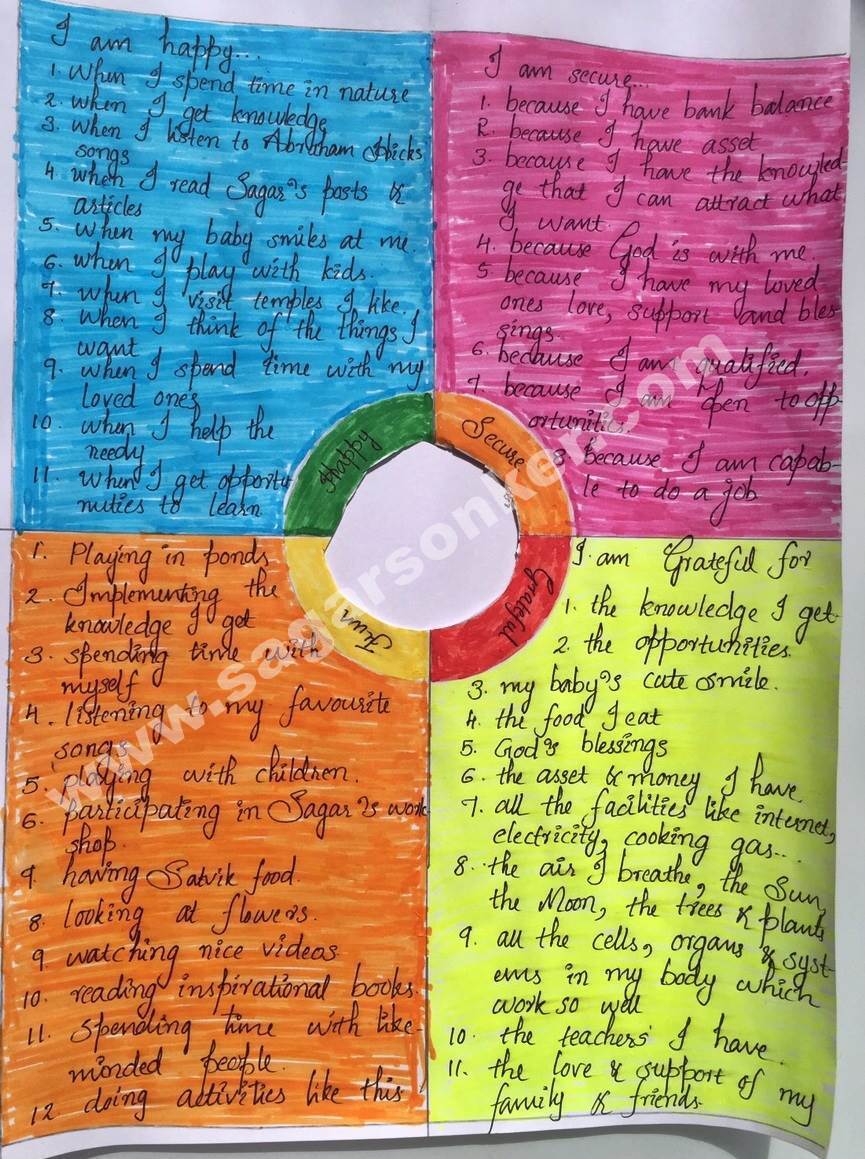 I am happy...
1. When I spend time in nature
2. when I get knowledge
3. when I listen to Abraham Hicks
songs
4. when I read Sagar's posts &
articles
5. when my baby smiles at me.
6. when I play with kids.
7. when I visit temples I like.
8. when I think of the things I
want
9. when I spend time with my
loved ones
10. when I help the
needy
11. when I get opportu
nuties to learn
I am secure...
1. because I have bank balance
2. because I have asset
3. because I have the knowled-
ge that I can attract what
I want.
4. because God is with me.
5. because I have my loved
ones love, support and bles-
sings.
6. because I am qualified.
7. because I am open to opp-
ortunities.
8 because I am capab-
le to do a job
Happy
Secure
Fun
Grateful
1. Playing in ponds
2. Implementing the
knowledge I get
3. spending time with
myself
4. listening to my favourite
songs
5. playing with children.
6. participating in Sagar's work
shop.
7. having Satvik food.
8. looking at flowers.
9. watching nice videos
10. reading inspirational books.
11. spending time with like-
minded people.
12. doing activities like this
I am Grateful for
1. the knowledge I get
2. the opportunities
3. my baby's cute smile.
4. the food I eat
5. God's blessings
6. the asset & money I have
7. all the facilities like internet,
electricity, cooking gas...
8. the air I breathe, the Sun,
the Moon, the trees & plants
9. all the cells, organs & syst-
ems in my body which
work so well
10. the teachers I have.
11. the love & support of my
family & friends
www.sagarsonker.com